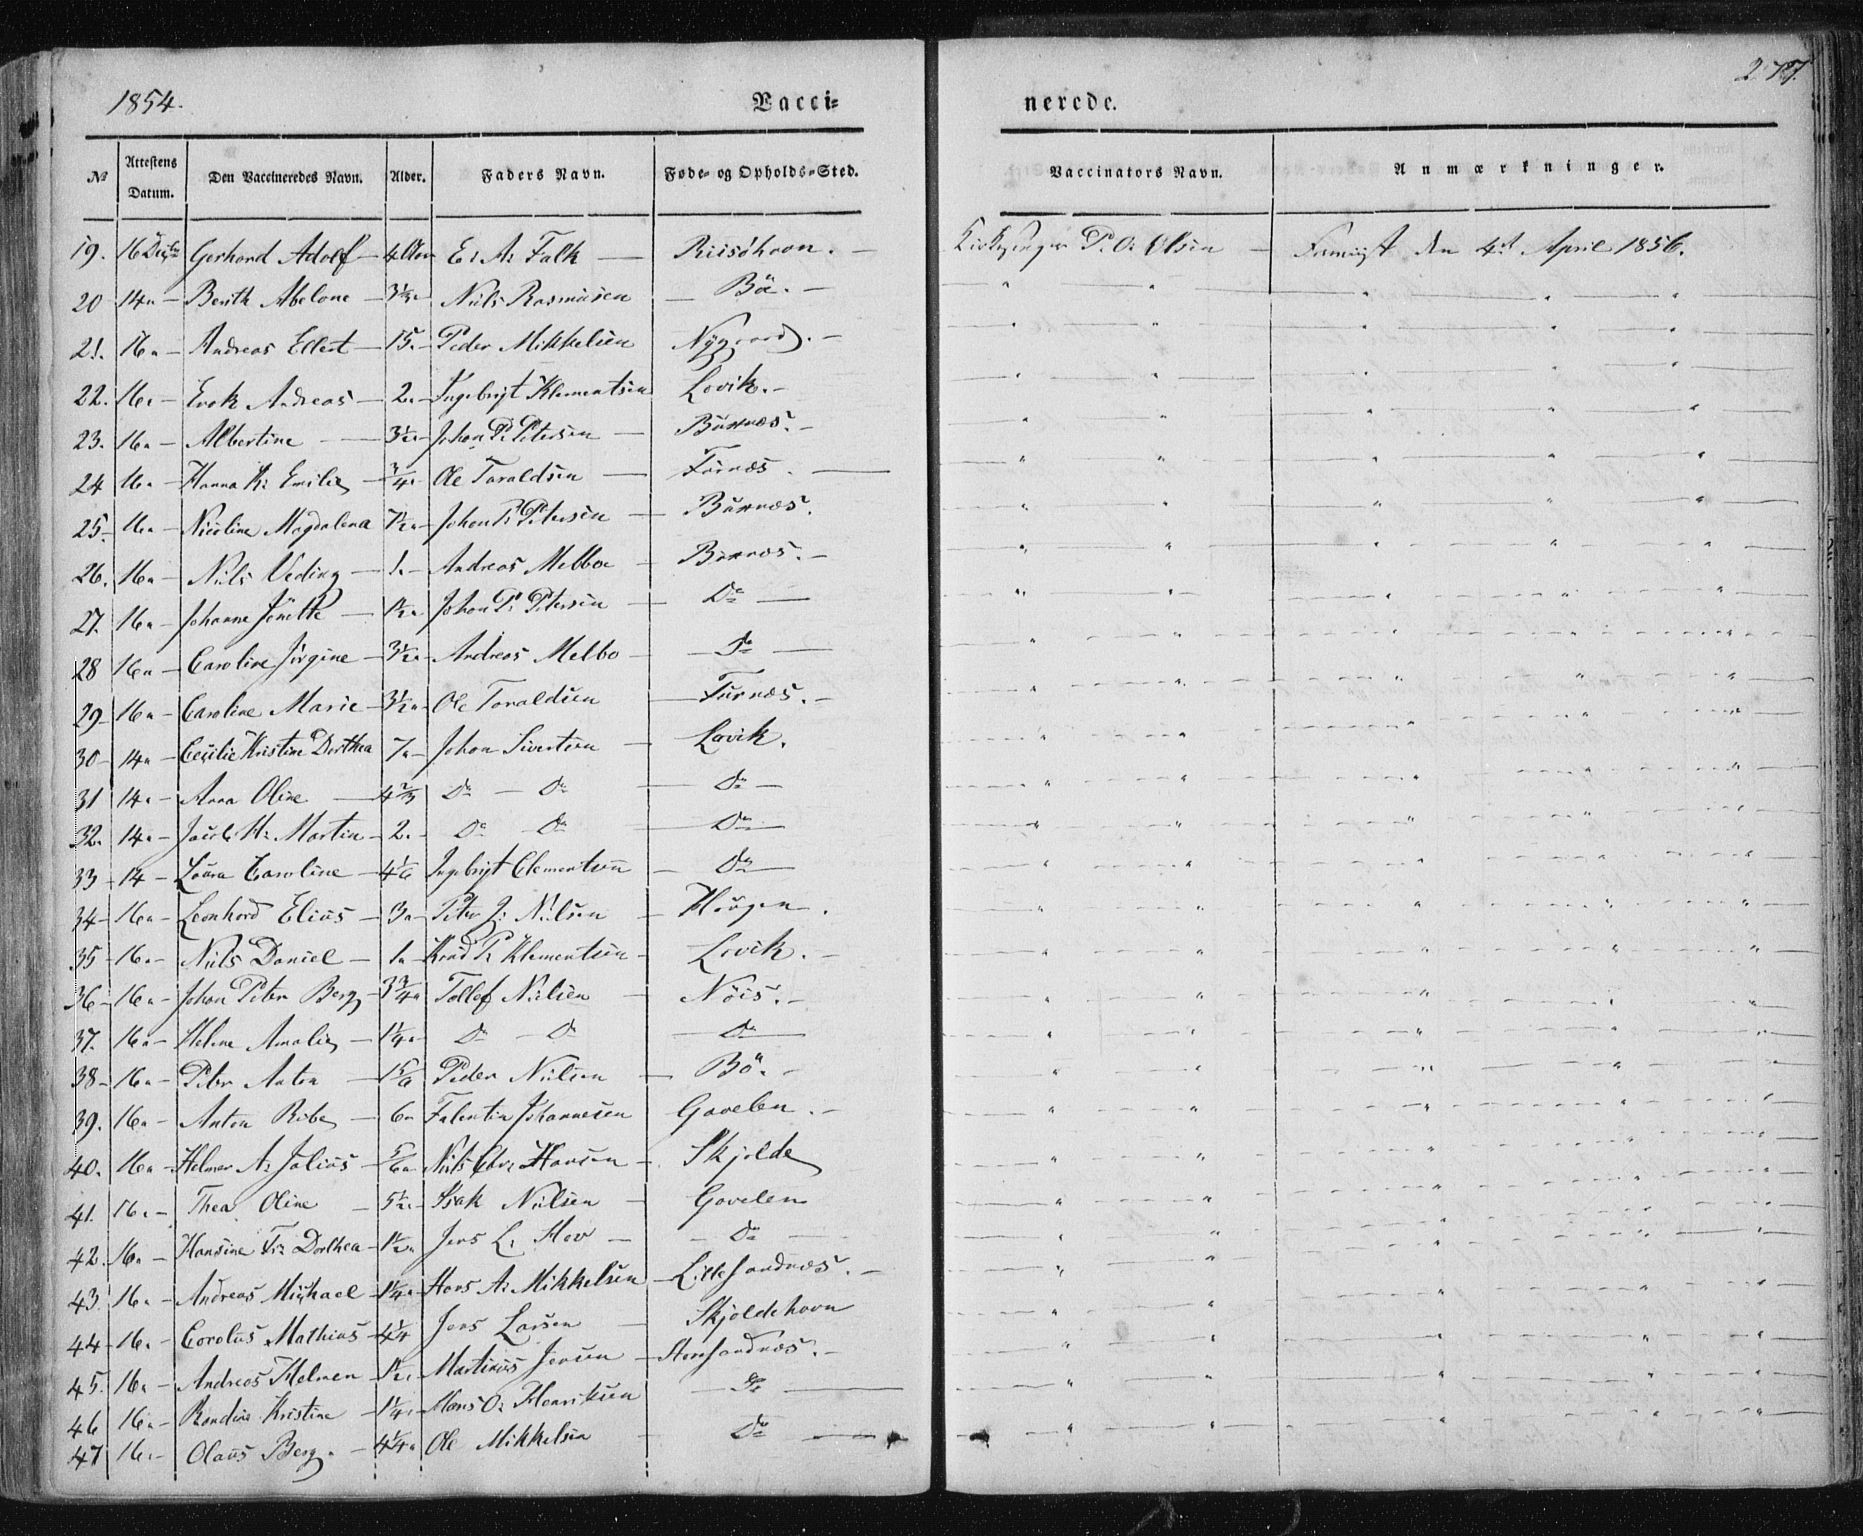 1854.
Vacci=
nerede.
277.
No
Attestens Datum.
Den Vaccineredes Navn.
Alder.
Faders Navn.
Føde- og Opholds-Sted.
Vaccinators Navn.
Anmærkninger.
19. 16 Gerhard Adolf 4 E: A: Falk P. O: Olsen den 4de April 1856.
20 14 " Berith Abelone 3 1/2 " Niels Rasmusen Bö.
21. 16 " Andreas Ellert 15. Peder Mikkelsen Nÿgaard.
22. 16 " Andreas 2 " Ingebrigt Klementsen Lovik.
23. 16 " Albertine 3 1/2 " Johan P. Petersen
24 16 " Hanna K: Emilie 3/4 " Ole Taraldsen
25. 16 " Nicoline Magdalena 7 1/2 " Johan P. Petersen
26. 16 " Niels Veding 1. Andreas Melboe
27. 16 " Johanne Jönette 1 1/2 " Johan P. Petersen Do
28 16 " Caroline Jörgine 3 1/2 " Andreas Melbo Do
29 16 " Caroline Marie 3 1/2 " Ole Toraldsen
30 14 " Cecilie Kristine Dorthea 7 " Johan Sivertsen Lovik.
31 14 " Anna Oline 4 2/3 Do Do Do
32. 14 " Jacob H: Martin 2. Do Do Do
33 14 Laura Caroline 4 1/6 Ingebrigt Clementsen Do
34 16 " Leonhard Elias 3 " Peter J: Nilsen Hougen.
35 16 " Niels Daniel 1 " P. Klementsen Lovik.
36 16 " Johan Peter Berg 3 3/4 " Tollef Nielsen Nöis.
37. 16 " Helene Amalie 1 1/4 " Do Do Do
38 16 " Peter Anton 1 5/6 Peder Nielsen Bö.
39. 16 " Anton Ribe 6 " Falentin Johannesen Gavelen.
40. 16 " Helmer A: Julius 5/6 " Niels Chr: Hansen Skjolde
41. 16 " Thea Oline 5 1/2 " Isak Nielsen Gavelen
42. 16 " Hansine Fr: Dorthea 1 1/2 " Jens L. Hov Do
43. 16 " Andreas Michael 1 1/4 " Hans A: Mikkelsen Lille Sandnæs.
44 16 " Carolus Mathias 4 1/4 Jens Larsen Skjoldehavn
45. 16 " Andreas Helmer 1 1/2 " Martinus Jensen
46 16 " Randine Kristine 1 1/4 " Hans O: Henriksen Do
47 16 " Olaus Berg. 4 1/4 " Ole Mikkelsen Do